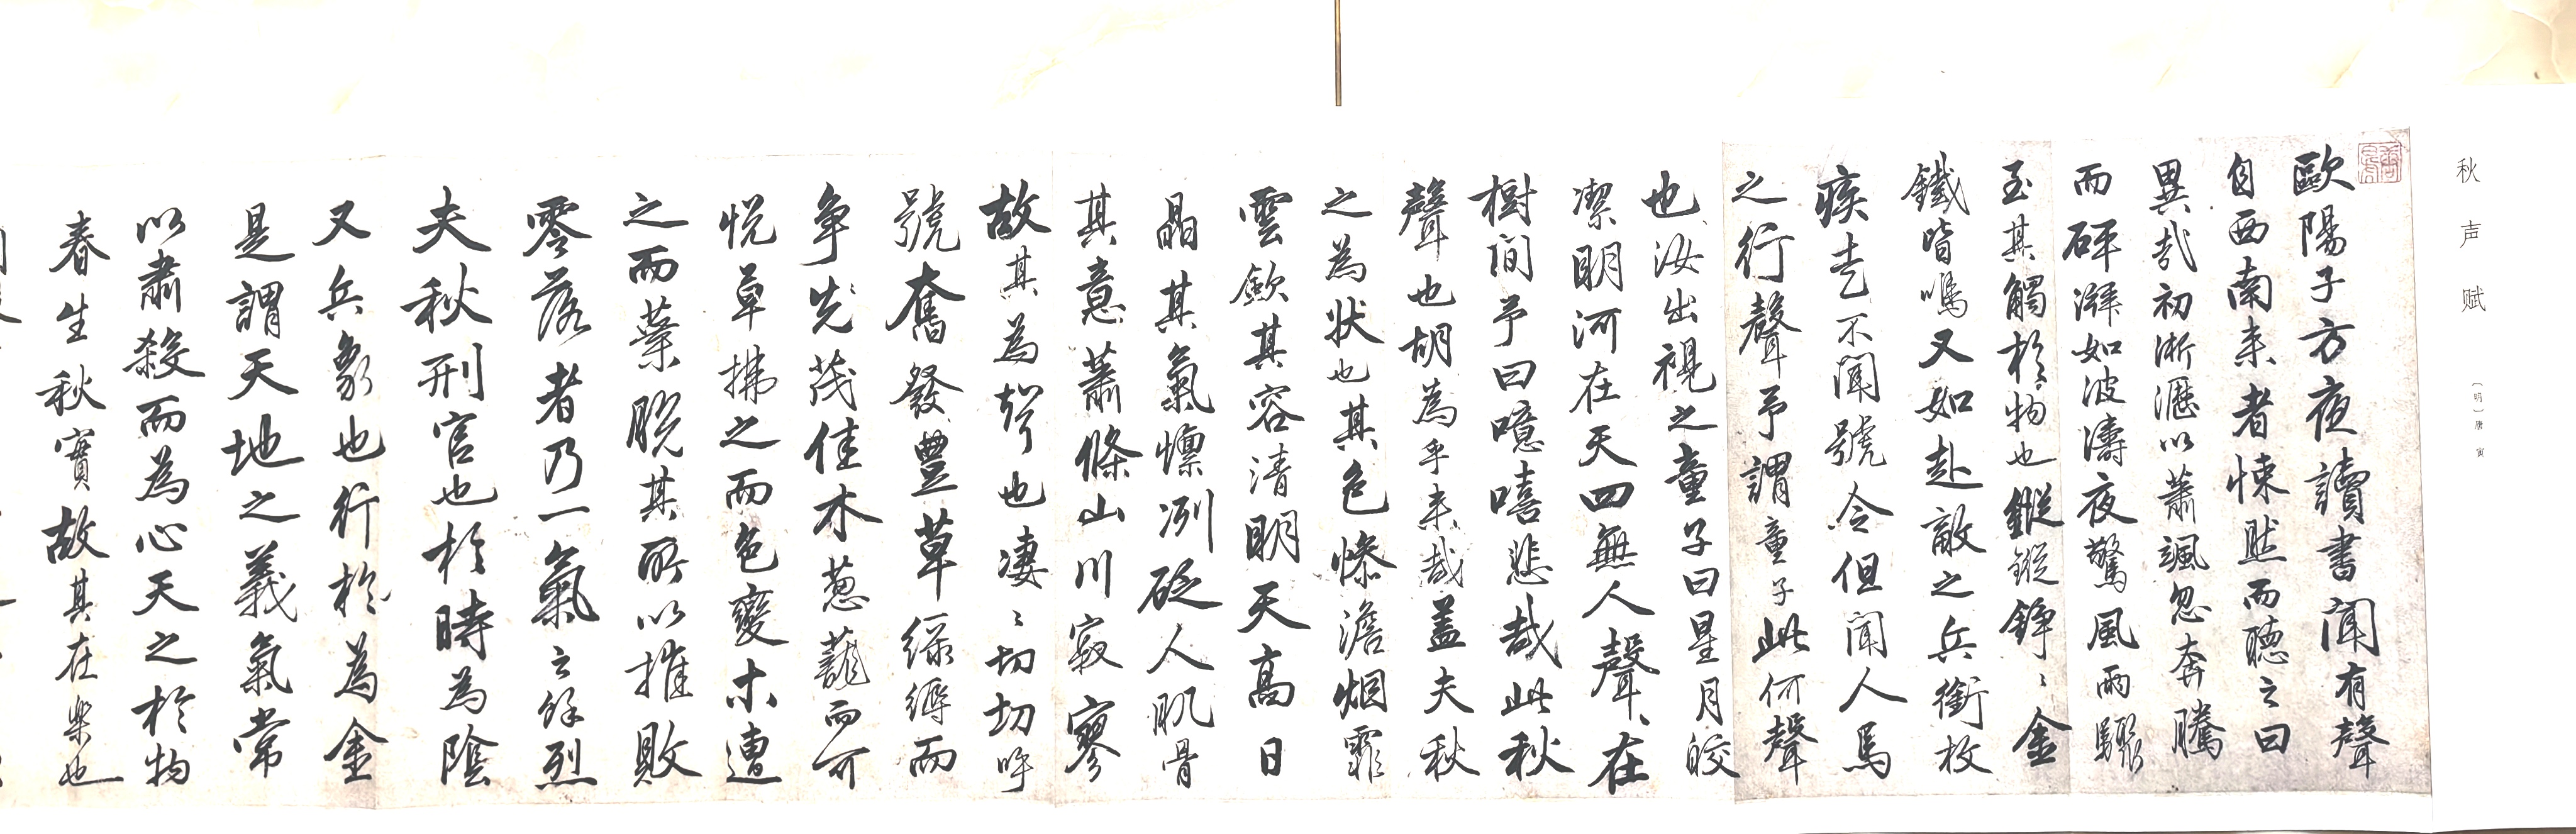 秋声赋 [明]唐寅
歐陽子方夜讀書聞有聲
自西南来者悚然而聽之曰
異哉初淅瀝以蕭颯忽奔騰
而砰湃如波濤夜驚風雨驟
至其觸於物也鏦鏦錚〻金
鐵皆鳴又如赴敵之兵銜枚
疾走不聞號令但聞人馬
之行聲予謂童子此何聲
也汝出視之童子曰星月皎
潔明河在天四無人聲〻在
樹間予曰噫嘻悲哉此秋
聲也胡為乎来哉蓋夫秋
之為狀也其色慘澹烟霏
雲歛其容清明天高日
晶其氣慄冽砭人肌骨
其意蕭條山川寂寥
故其為聲也凄〻切切呼
號奮發豐草緑縟而
争先茂佳木蔥蘢而可
悦草拂之而色變木遭
之而葉脱其所以摧敗
零落者乃一氣之餘烈
夫秋刑官也於時為陰
又兵象也行於為金
是謂天地之義氣常
以肅殺而為心天之於物
春生秋實故其在樂也